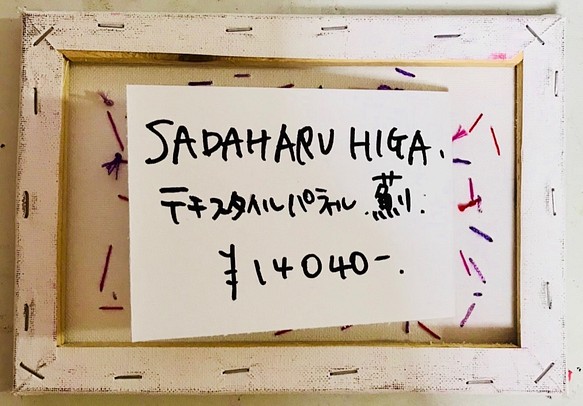 SADAHARU HIGA.
テキスタイルパネル.薊.
¥14040-.